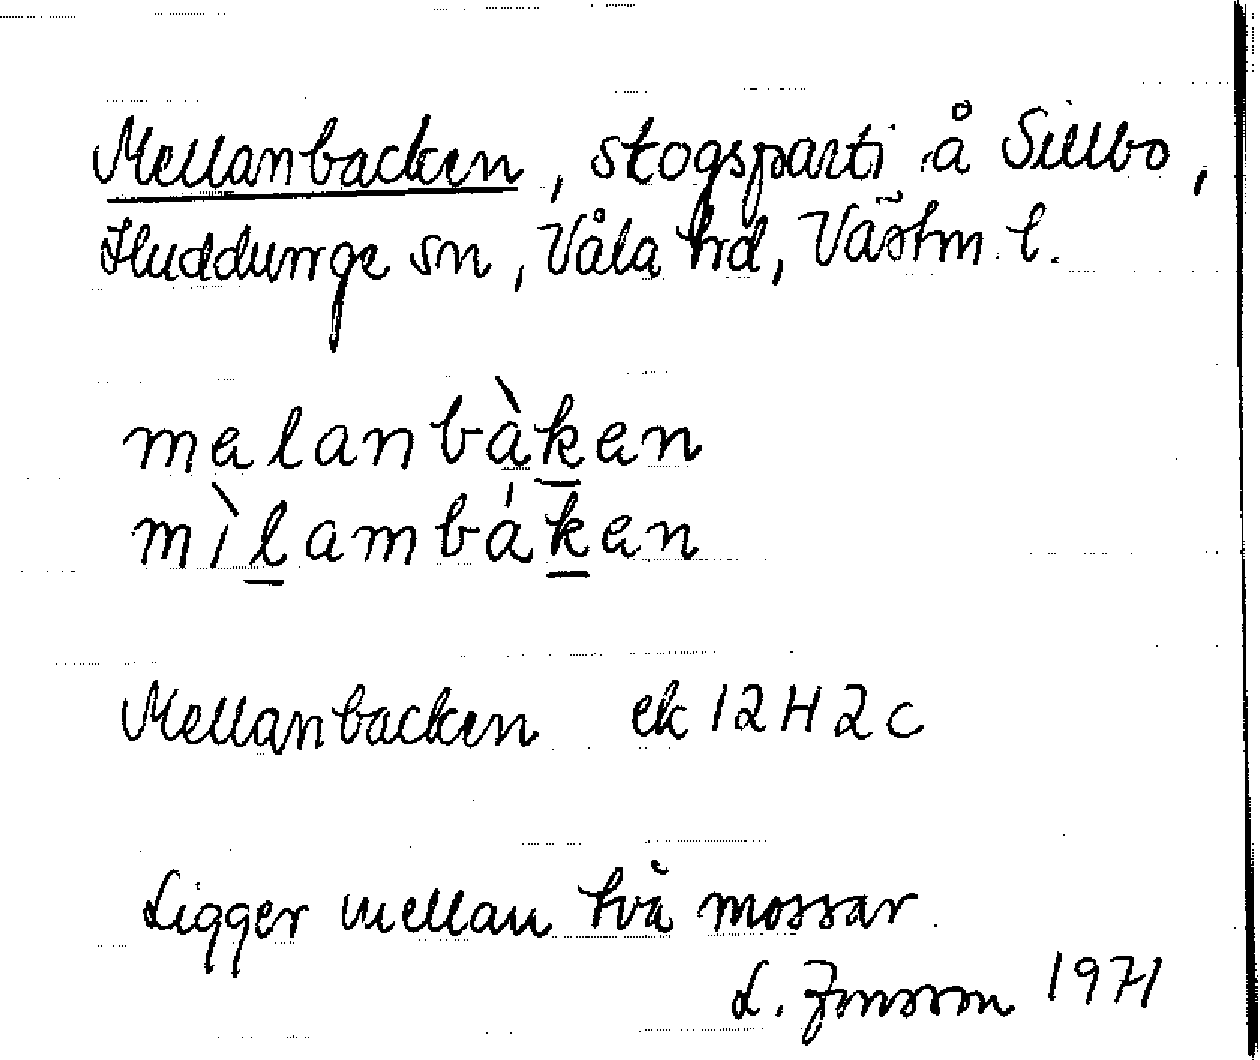 Mellanbacken, skogsparti å Sillbo,
Huddunge sn, Våla hd, Västm. l.
melanbàken
mìlambáken
Mellanbacken ek 12H2c
Ligger mellan två mossar.
L. Jonsson 1971